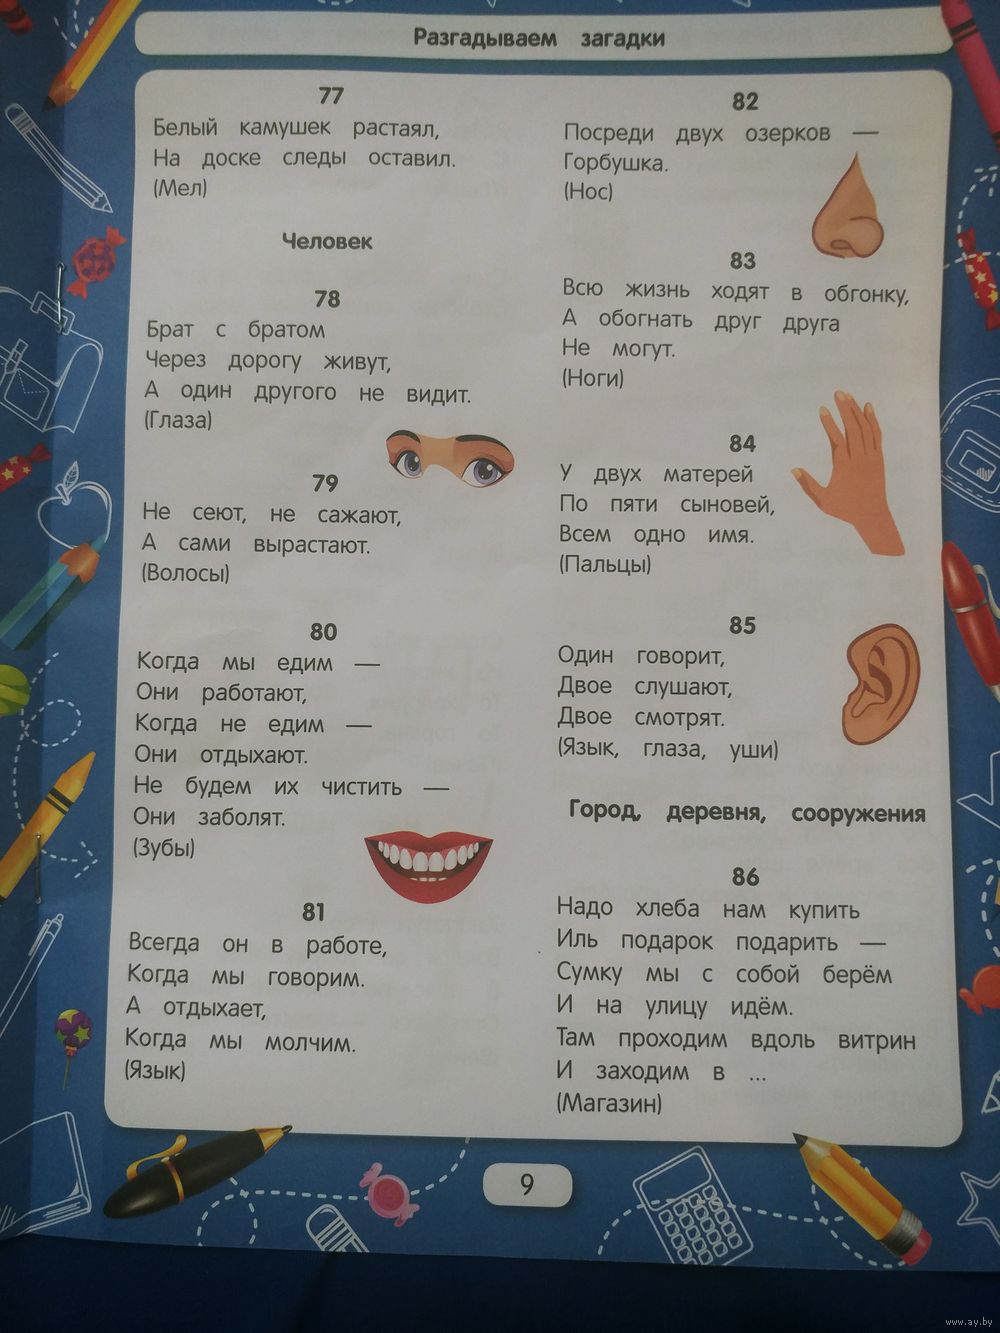 Разгадываем загадки
77
Белый камушек растаял,
На доске следы оставил.
(Мел)
Человек
78
Брат с братом
Через дорогу живут,
А один другого не видит.
(Глаза)
79
Не сеют, не сажают,
А сами вырастают.
(Волосы)
80
Когда мы едим —
Они работают,
Когда не едим —
Они отдыхают.
Не будем их чистить —
Они заболят.
(Зубы)
81
Всегда он в работе,
Когда мы говорим.
А отдыхает,
Когда мы молчим.
(Язык)
82
Посреди двух озерков —
Горбушка.
(Нос)
83
Всю жизнь ходят в обгонку,
А обогнать друг друга
Не могут.
(Ноги)
84
У двух матерей
По пяти сыновей,
Всем одно имя.
(Пальцы)
85
Один говорит,
Двое слушают,
Двое смотрят.
(Язык, глаза, уши)
Город, деревня, сооружения
86
Надо хлеба нам купить
Иль подарок подарить —
Сумку мы с собой берём
И на улицу идём.
Там проходим вдоль витрин
И заходим в ...
(Магазин)
9
www.ay.by